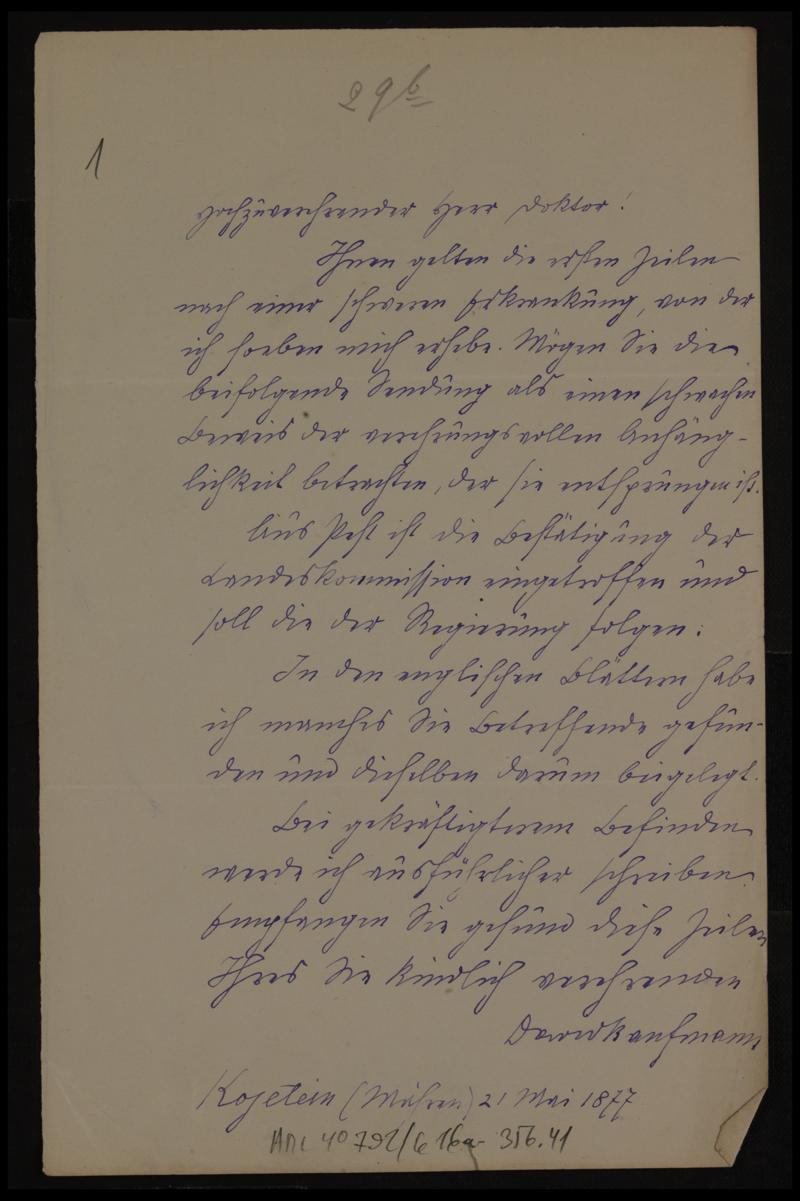 29b
1
Hochzuverehrender Herr Doktor!
Ihnen gelten die ersten Zeilen
nach einer schweren Erkrankung, von der
ich soeben mich erhebe. Mögen Sie die
beifolgende Sendung als einen schwachen
Beweis der verehrungsvollen Anhäng-
lichkeit betrachten, der sie entsprungen ist.
Aus Pest ist die Bestätigung der
Landeskommission eingetroffen und
soll die der Regierung folgen.
In den englischen Blättern habe
ich manches Sie Betreffende gefun-
den und dieselben darum beigelegt.
Bei gekräftigterem Befinden
werde ich ausführlicher schreiben.
Empfangen Sie gesund diese Zeilen
Ihres Sie kindlich verehrenden
David Kaufmann
Kojetein (Mähren) 21 Mai 1877
40792/6 16a- 356.41